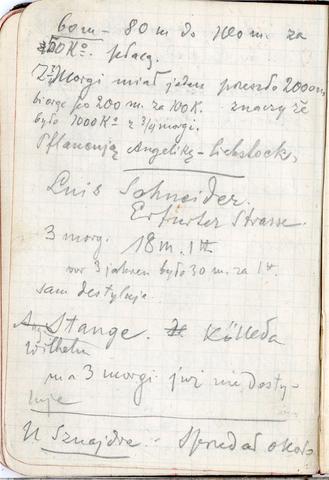 60 m – 80 m do 100 m. za
50 Ko. płacą.
Z ¾ Morgi miał jeden przeszło 2000 m
biorąc po 200 m. za 100 K. znaczy że
było 1000 Ko z ¾ morgi.
Pflancują Angelikę – Liebstock,
Luis Schneider.
Erfurter Strasse.
3 morgi 18 m. 1
vor 3 jahren było 30 m. za 1
sam destyluje.
Stange. Kölleda
Wilhelm
ma 3 morgi już nie desty-
luje
U Sznajdra – Sprzedał około